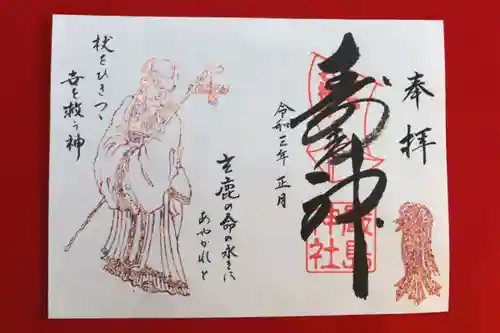 奉拝
寿老神
嚴島
神社
令和三年 正月
玄鹿の命の永きに
あやかれと
杖をひきつゝ
吉を救う神